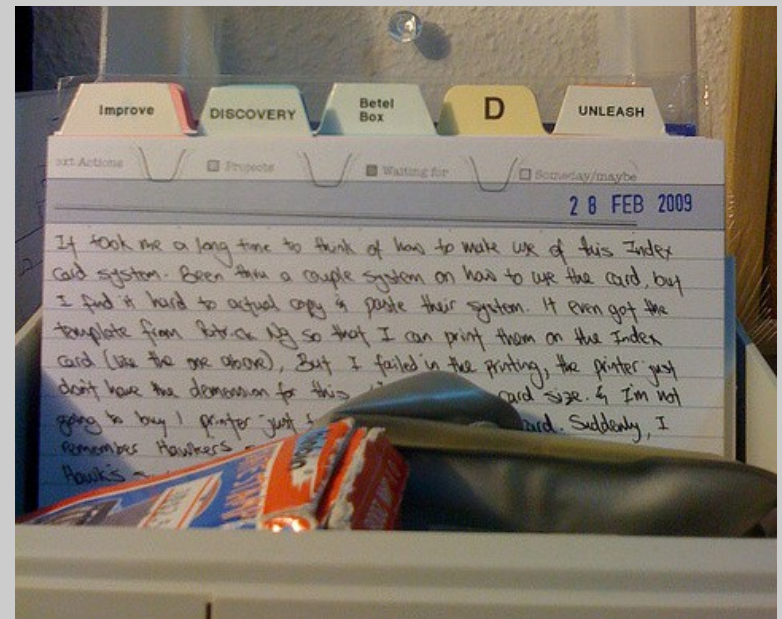 Improve
DISCOVERY
Betel
Box
D
UNLEASH
ext Actions Projects Waiting for Someday/maybe
28 FEB 2009
It took me a long time to think of how to make use of this Index
card system. Been thru a couple system on how to use the card, but
I find it hard to actual copy & paste their system. It even got the
template from Patrick Ng so that I can print them on the Index
card (like the one above), But I failed in the printing, the printer just
don't have the demension for this card size. & I'm not
going to buy 1 printer just card. Suddenly, I
remember Hawkers
Hawk's